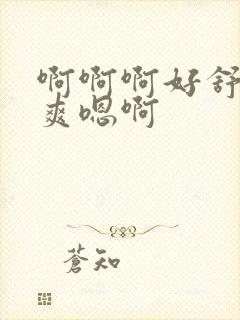 啊啊啊好舒
爽嗯啊
蒼知